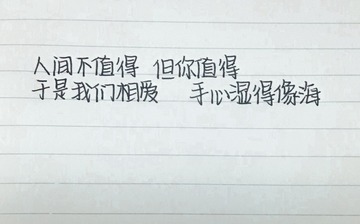 人间不值得 但你值得
于是我们相爱 手心湿得像海